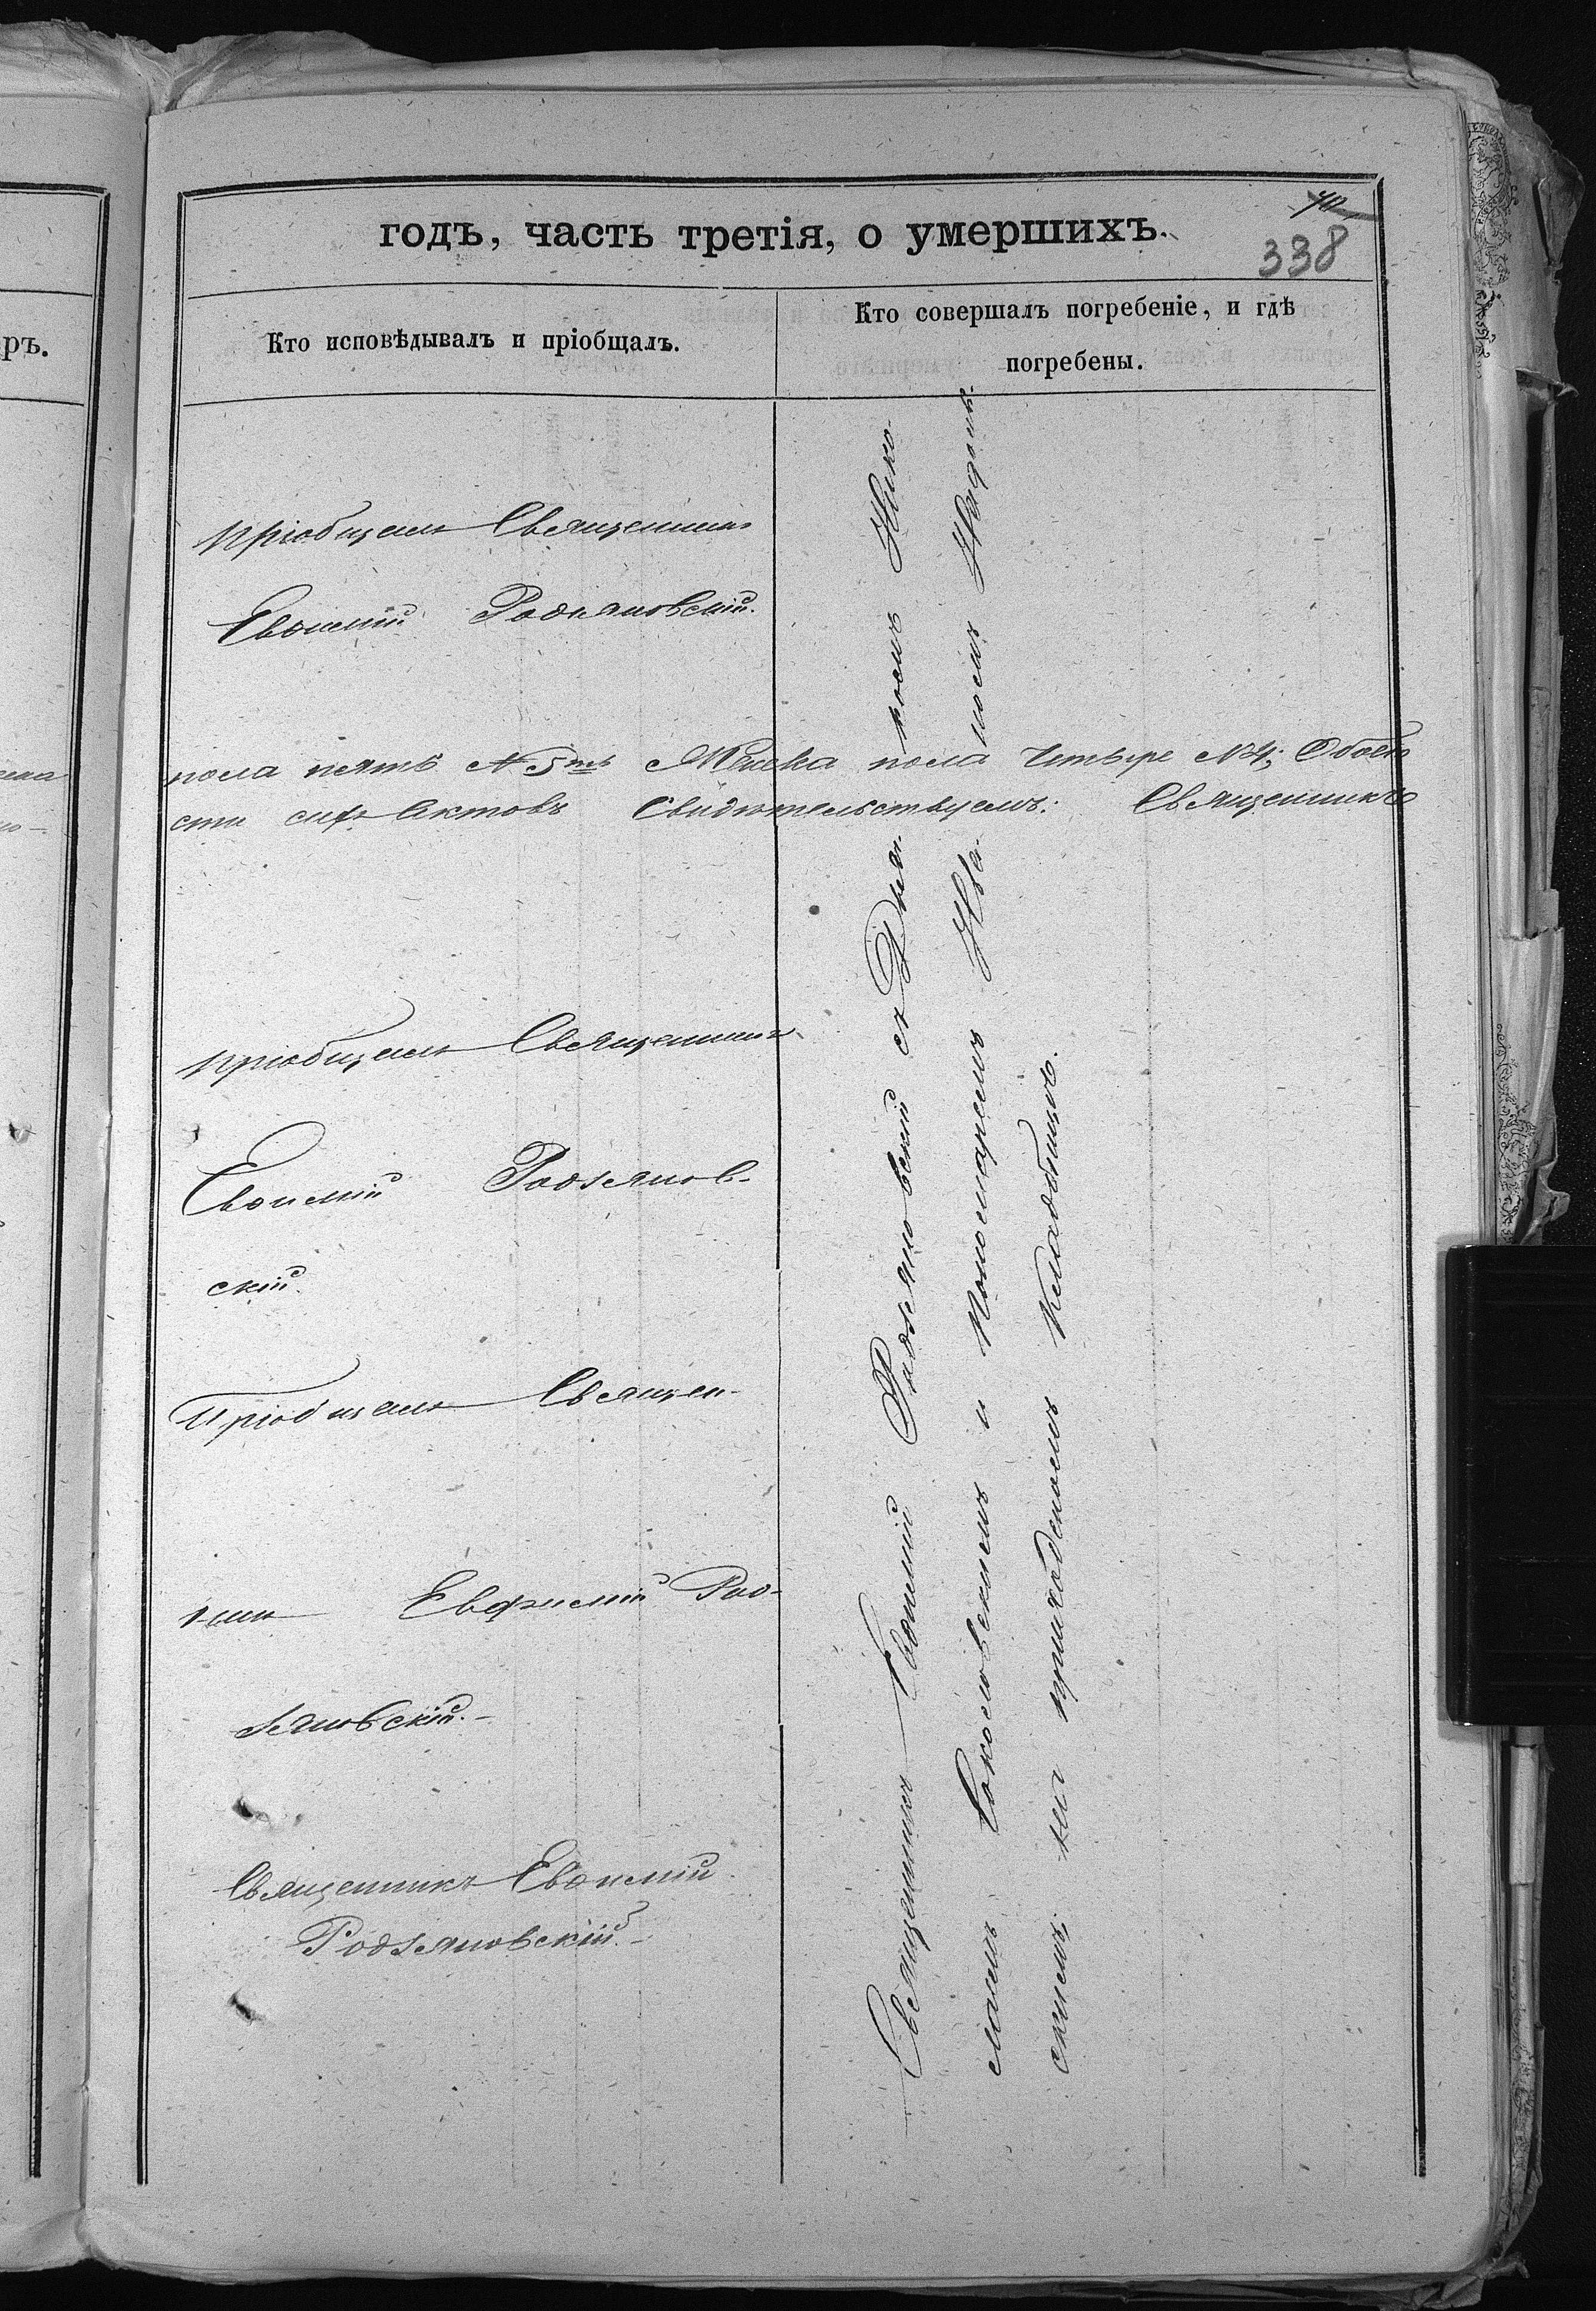 годъ, часть третія, о умершихъ.
40
338
ръ.
Кто исповѣдывалъ и пріобщалъ.
Кто совершалъ погребеніе, и гдѣ
погребены.
пріобщалъ Священникъ
Евѳимій Родзяновскій.
пола пять №5ть Женска пола Четыре №4; Обоего
сти сихъ Актовъ Свидѣтельствуемъ: Священникъ
пріобщалъ Священникъ
Евѳимій Родзянов-
скій.
Пріобщалъ Священ-
никъ Евфимій Род-
зяновскій.-
Священникъ Евѳимій
Родзяновскій.-
Священникъ Евѳимій Родзяновскій съ Дья-
комъ Нико-
лаемъ Соколовскимъ и Пономаремъ Ива-
номъ
скимъ; на приходскомъ Кладбищѣ.